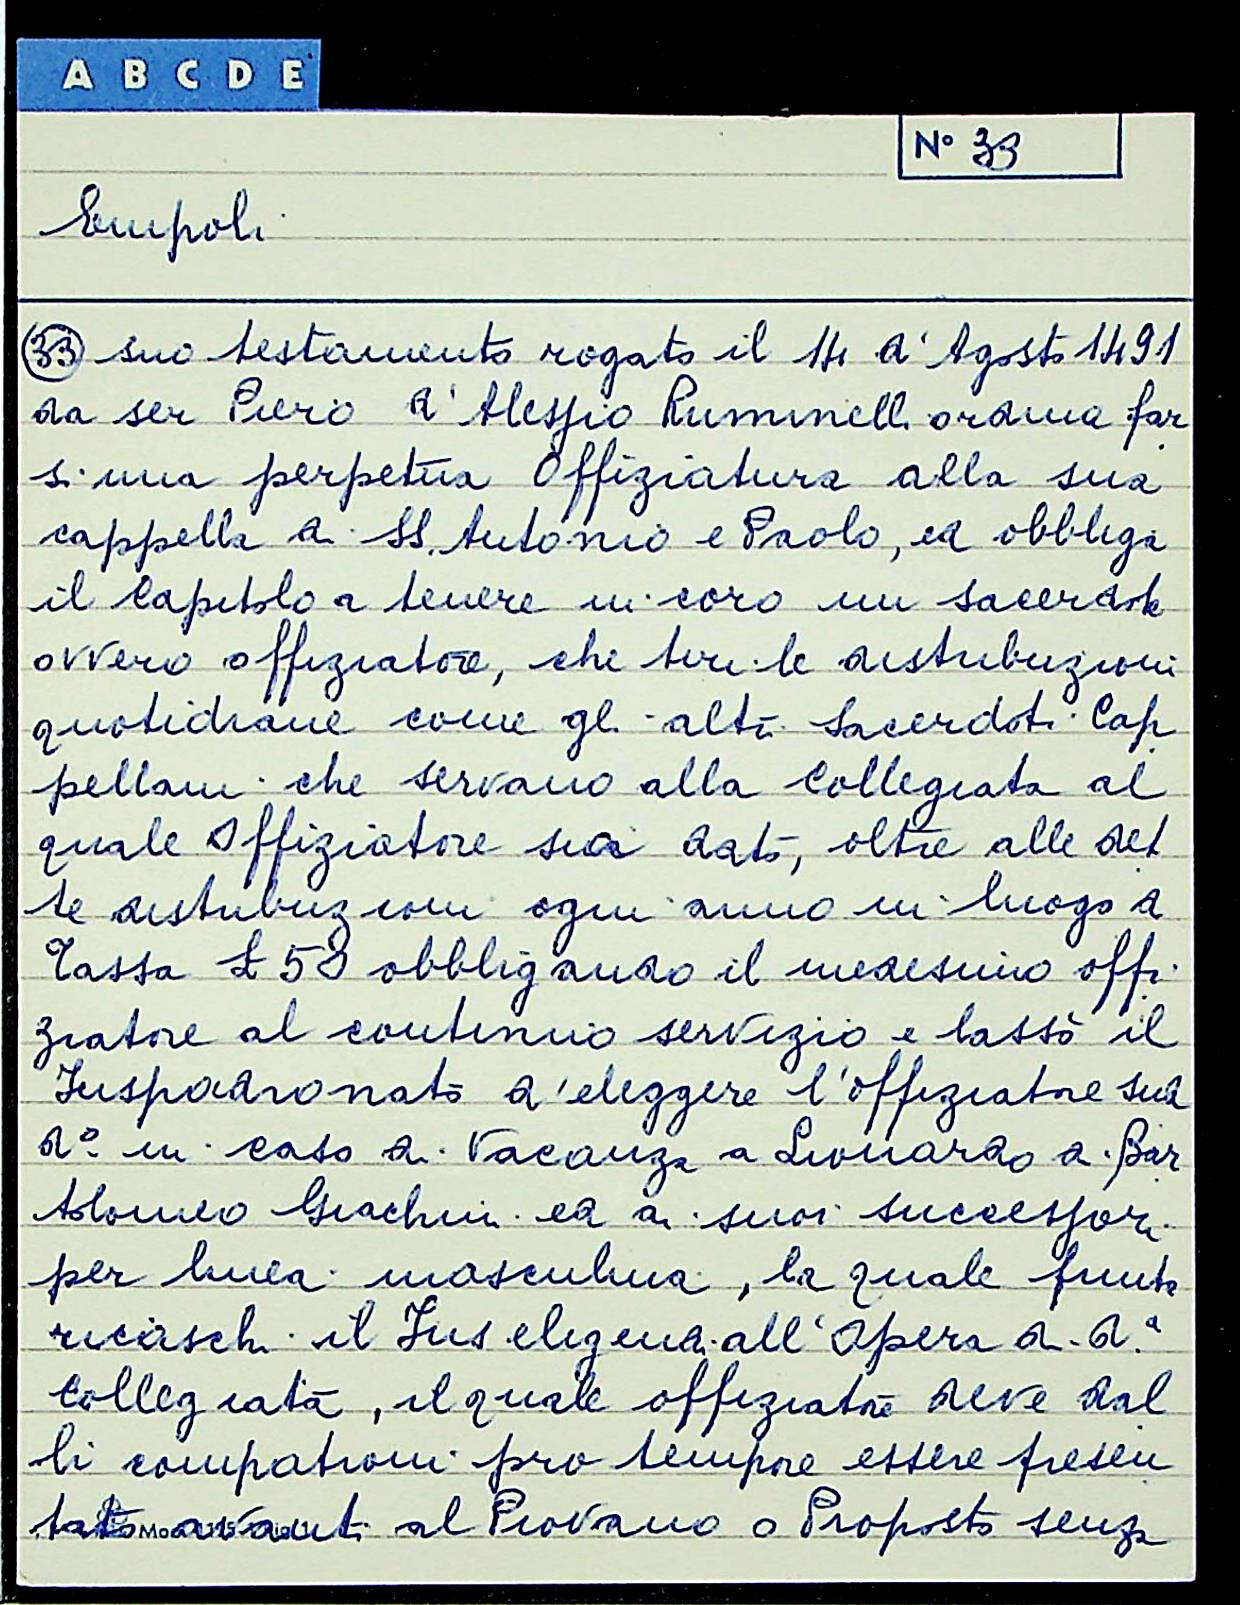 A B C D E
N° 33
Empoli
33 suo testamento rogato il 14 d'Agosto 1491
da ser Piero d'Alessio Rumminelli ordina far
si una perpetua Offiziatura alla sua
cappella di SS. Antonio e Paolo, ed obbliga
il Capitolo a tenere in coro un sacerdote
ovvero offiziatore, che tiri le distribuzioni
quotidiane come gli altri Sacerdoti Cap
pellani che servano alla Collegiata al
quale Offiziatore sia dato, oltre alle det
te distribuzioni ogni anno in luogo di
Tassa £ 58 obbligando il medesimo offi
ziatore al continuo servizio e lassò il
Juspadronato d'eleggere l'offiziatore sud
d.° in caso di vacanza a Lionardo di Bar
tolomeo Giachini ed ai suoi successori
per linea masculina, la quale finita
ricaschi il Jus eligendi all'Opera di d.ª
Collegiata, il quale offiziatore deve dal
li compatroni pro tempore essere presen
tato avanti al Piovano o Proposto senza